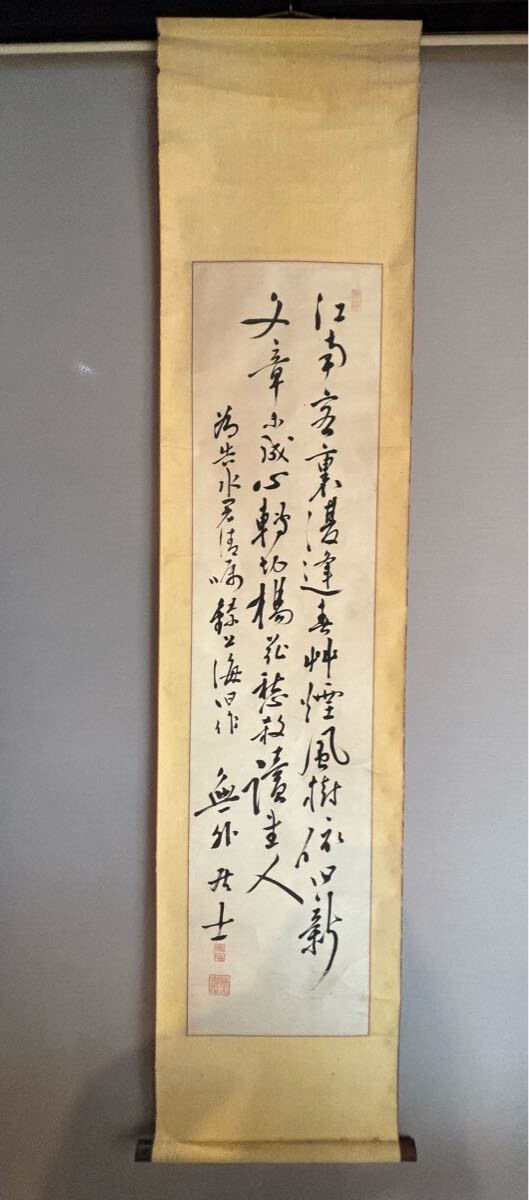 江南客裏夏逢春艸煙風樹依旧新
文章未成心轉切楊花愁殺讀書人
為告水君清嘱録上海旧作 無外居士